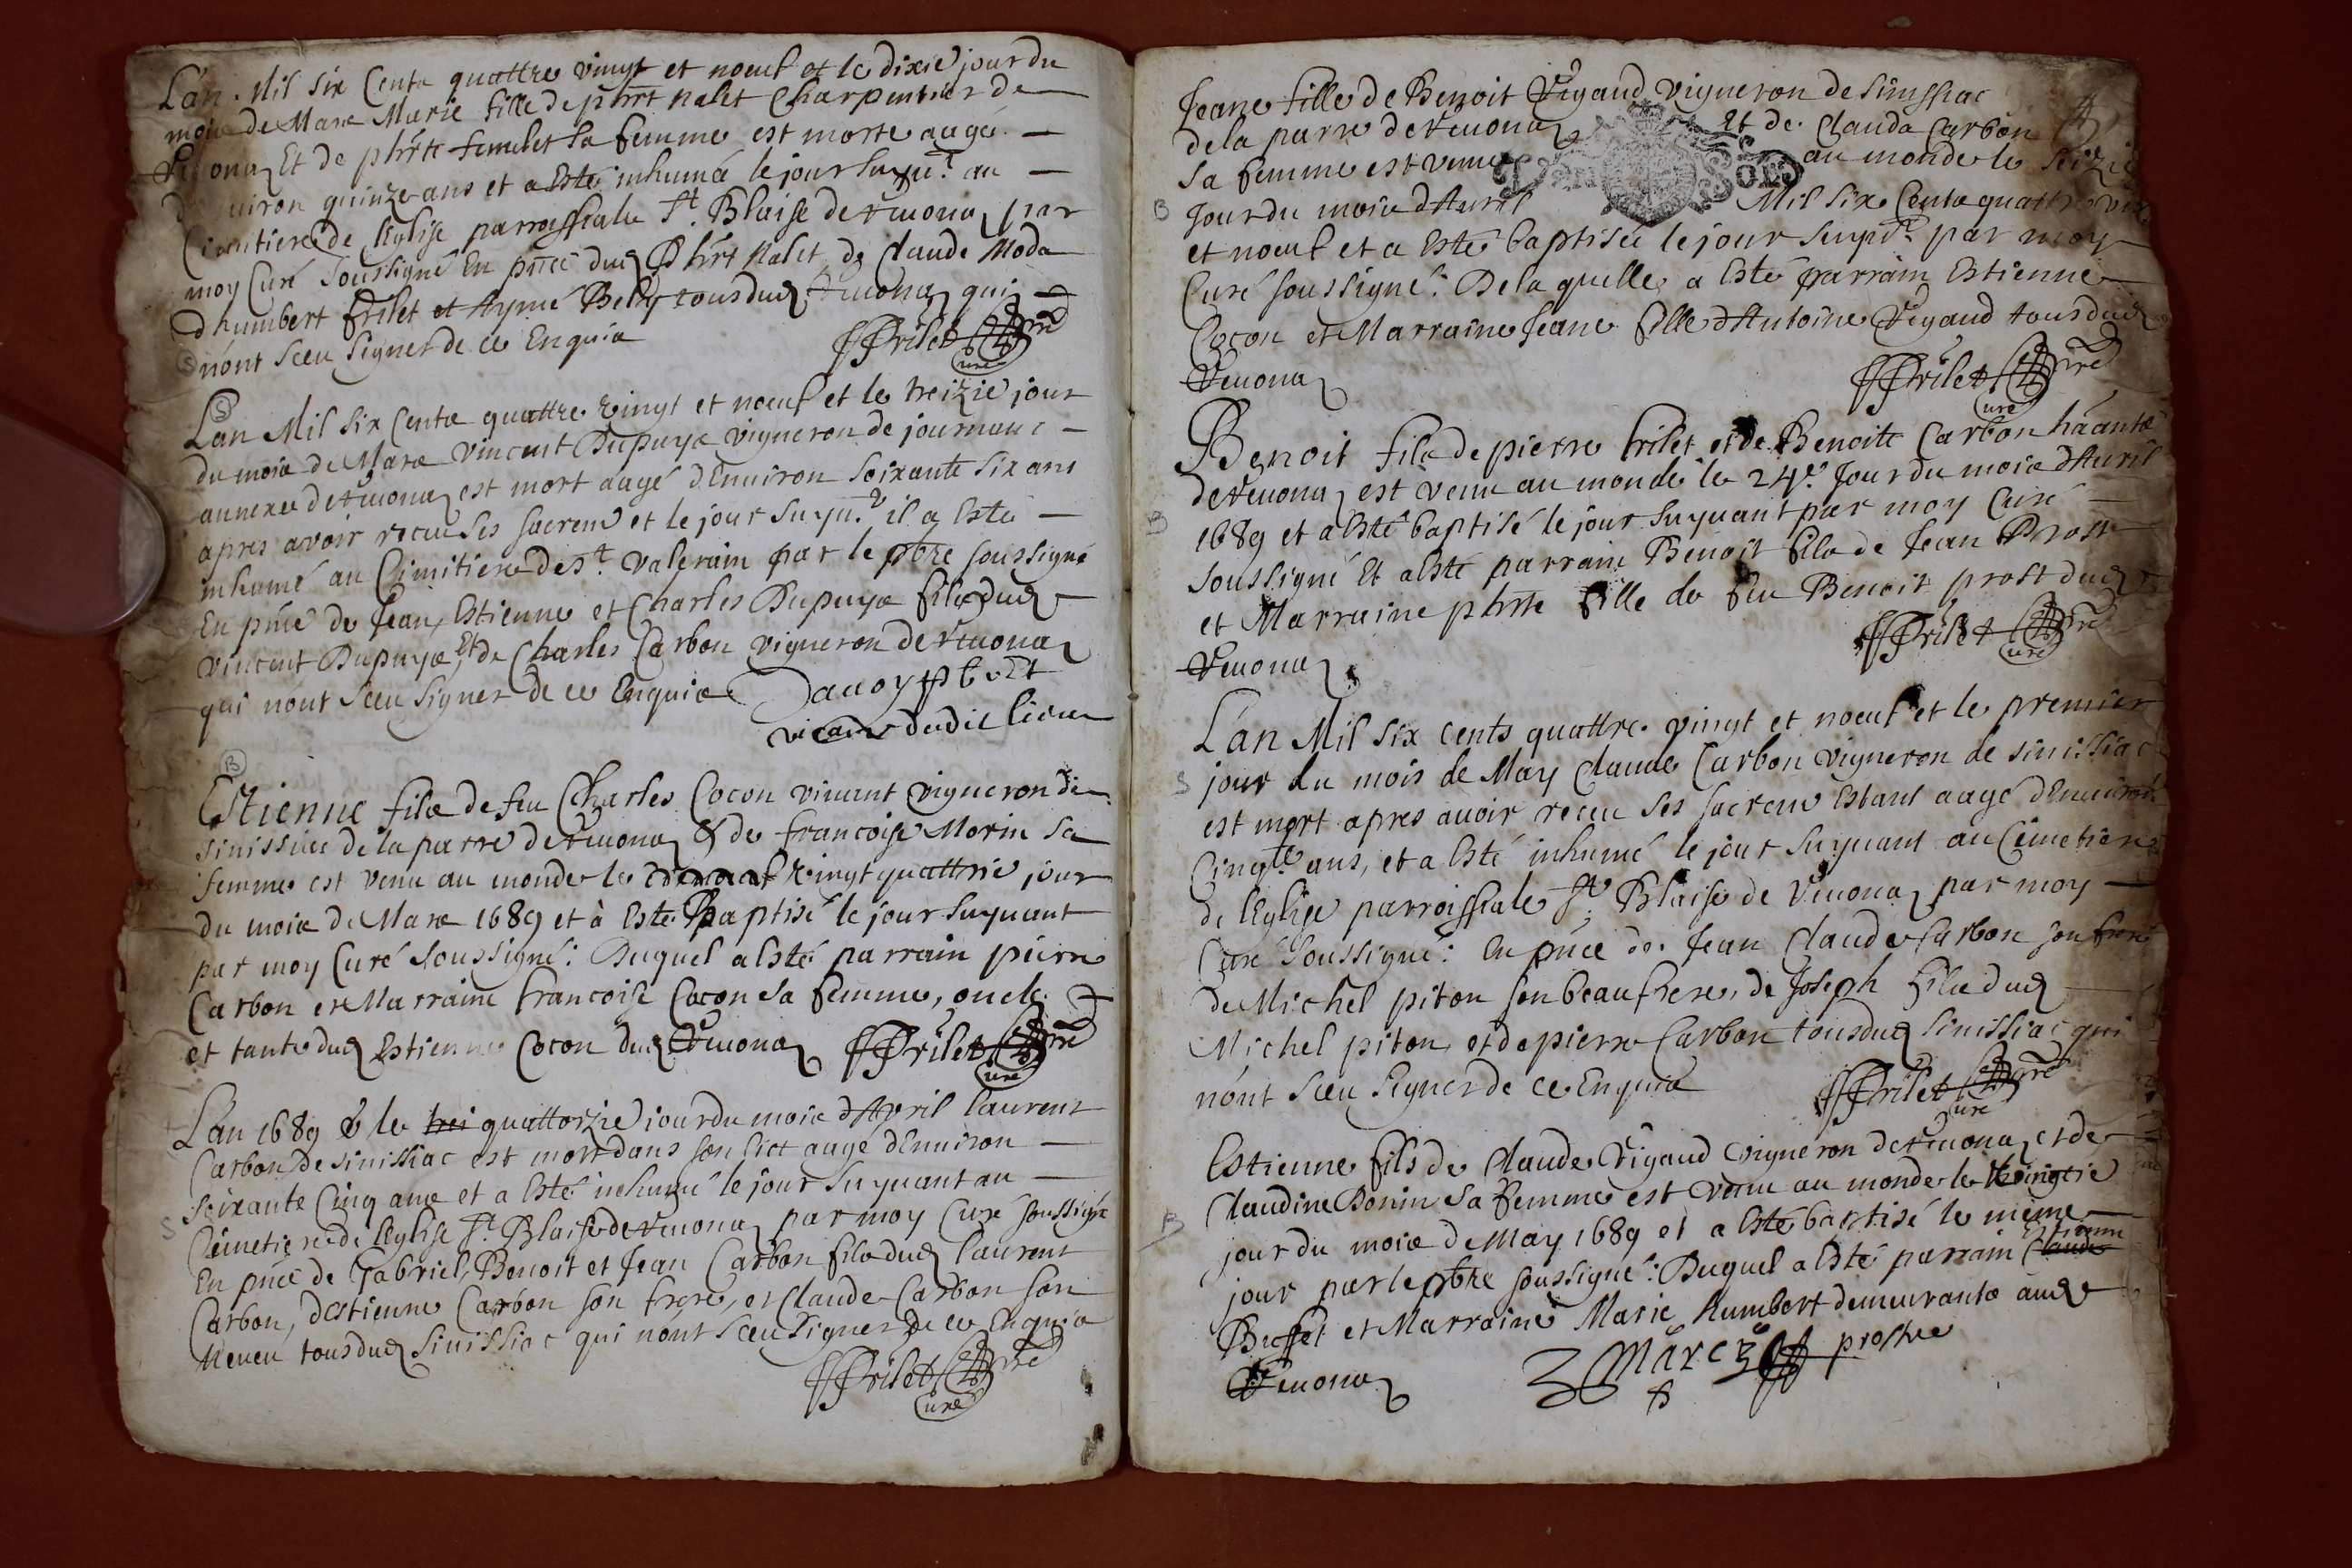 L'an Mil six Cents quattre vingt et noeuf et le dixie jour du
mois de Mars Marie fille de phbrt nalet Charpentier de
Veuona Et de phbrte femelet sa femme est morte aagée
d'enuiron quinze ans et a Esté inhumée le jour suyu.t au
Cimitiere de l'Eglise parroissiale St. Blaise de Veuona par
moy Curé soussigné En pnce dud phbrt Nalet, de Claude Moda
d'humbert frilet et Aymé Belly tous dud Veuona qui
n'ont sceu signer de ce Enquis
FFrilet Cure
S
L'an Mil six Cents quattre vingt et noeuf et le treizie jour
du mois de Mars Vincent Dupuys vigneron de journans
annexe de Veuona est mort aagé d'Enuiron soixante six ans
apres avoir receu ses sacrem et le jour suyu.t il a Esté
inhumé au Cimitiere de St. Valerain par le pbre soussigné
En pnce de Jean, Estienne et Charles Dupuys fils dud
Vincent Dupuys, Et de Charles Carbon vigneron de Veuona
qui n'ont sceu signer de ce Enquis
vicaire dudit lieu
B
Estienne fils de feu Charles Cocon viuant vigneron de
sinissiac de la parre de Veuona & de francoise Morin sa
femme est venu au monde le vingt quattrie jour
du mois de Mars 1689 et à Esté Baptisé le jour suyuant
par moy Curé soussigné: Duquel a Esté parrain pierre
Carbon et Marraine francoise Cocon sa femme, oncle
et tante dud Estienne Cocon dud Veuona FFrilet Cure
L'an 1689 & le trei quattorzie jour du mois d'Apvril laurent
Carbon de sinissiac est mort dans son lict aagé d'Enuiron
soixante Cinq ans et a Esté inhumé le jour suyuant au
S
Cemetiere de l'Eglise St. Blaise de Veuona par moy Curé soussigné
En pnce de Gabriel, Benoit et Jean Carbon fils dud laurent
Carbon, d'Estienne Carbon son frere, et Claude Carbon son
Neueu tous dud sinissiac qui n'ont sceu signer de ce Enquis
FFrilet Cure
Jeane fille de Benoit Vigaud vigneron de sinissiac
de la parre de Veuona Et de Clauda Carbon
sa femme est venue au monde le seizie
B
Jour du mois d'Auril Mil six Cents quattre vint
et noeuf et a Esté baptisée le jour suyu.t par moy
Curé soussigné: De la quelle a Esté parrain Estienne
Cocon et Marraine Jeane fille d'Antoine Vigaud tous dud
Veuona
FFrilet Cure
Benoit fils de pierre frilet et de Benoite Carbon h'ants
de Veuona est venu au monde le 24e. Jour du mois d'Auril
B
1689 et a Esté baptisé le jour suyuant par moy Curé
soussigné Et a Esté parrain Benoit fils de Jean Prost
et Marraine phbrte fille de feu Benoit prost dud
Veuona
FFrilet Cure
L'an Mil six cents quattre vingt et noeuf et le premier
S
jour du mois de May Claude Carbon vigneron de sinissiac
est mort apres auoir receu ses sacrem Estant aagé d'Enuiron
Cinq.te ans, et a Esté inhumé le jour suyuant au Cemetiere
de l'Eglise parroissiale St. Blaise de Veuona par moy
Curé soussigné: En pnce de Jean Claude Carbon son frere
de Michel piton son beaufrere, de Joseph fils dud
Michel piton, et de pierre Carbon tous dud sinissiac qui
n'ont sceu signer de ce Enquis
FFrilet Cure
Estienne fils de Claude Vigaud vigneron de Veuona et de
Claudine Bonin sa femme est venu au monde le vingtie
B
jour du mois de May 1689 et a Esté baptisé le mème
jour par le pbre soussigné: Duquel a Esté parrain Claude Estienne
Buffet et Marraine Marie humbert demeurants aud
Veuona
Marc prostre